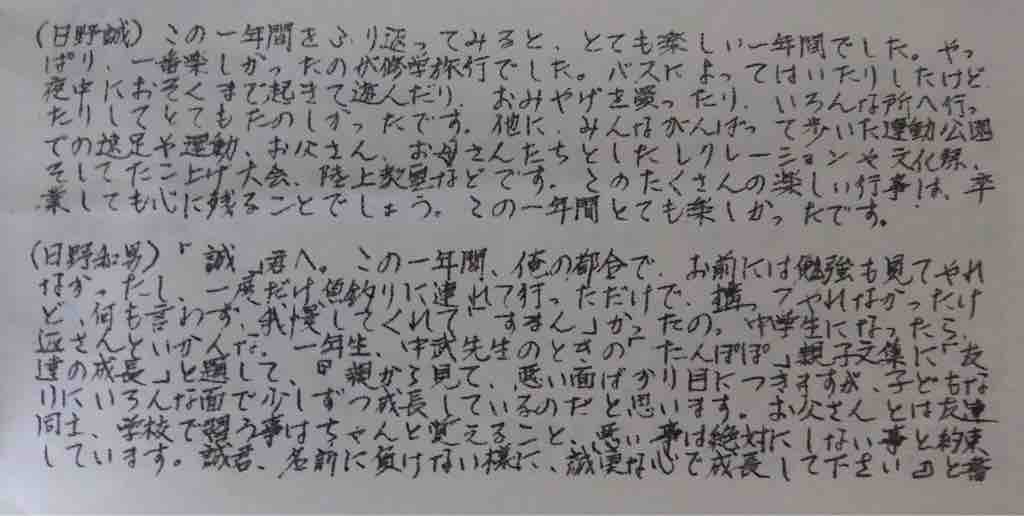 (日野誠) この一年間をふり返ってみると、とても楽しい一年間でした。やっ
ぱり、一番楽しかったのが修学旅行でした。バスによってはいたりしたけど、
夜中におそくまで起きて遊んだり、おみやげを買ったり、いろんな所へ行っ
たりしてとてもたのしかったです。他に、みんながんばって歩いた運動公園
での遠足や運動、お父さん、お母さんたちとしたレクレーションや文化祭、
そしてたこ上げ大会、陸上教室などです。このたくさんの楽しい行事は、卒
業しても心に残ることでしょう。この一年間とても楽しかったです。
(日野和男)「誠」君へ。この一年間、俺の都合で、お前には勉強も見てやれ
なかったし、一度だけ魚釣りに連れて行っただけで、構ってやれなかったけ
ど、何も言わず、我慢してくれて「すまん」かったの。中学生になったら、
さんといかんな。一年生、中武先生のときの「たんぽぽ」親子文集に「友
達の成長」と題して、『親から見て、悪い面ばかり目につきますが、子どもな
りにいろんな面で少しずつ成長しているのだと思います。お父さんとは友達
同士、学校で習う事はちゃんと覚えること、悪い事は絶対にしない事と約束
しています。誠君、名前に負けない様に、誠実な心で成長して下さい』と書